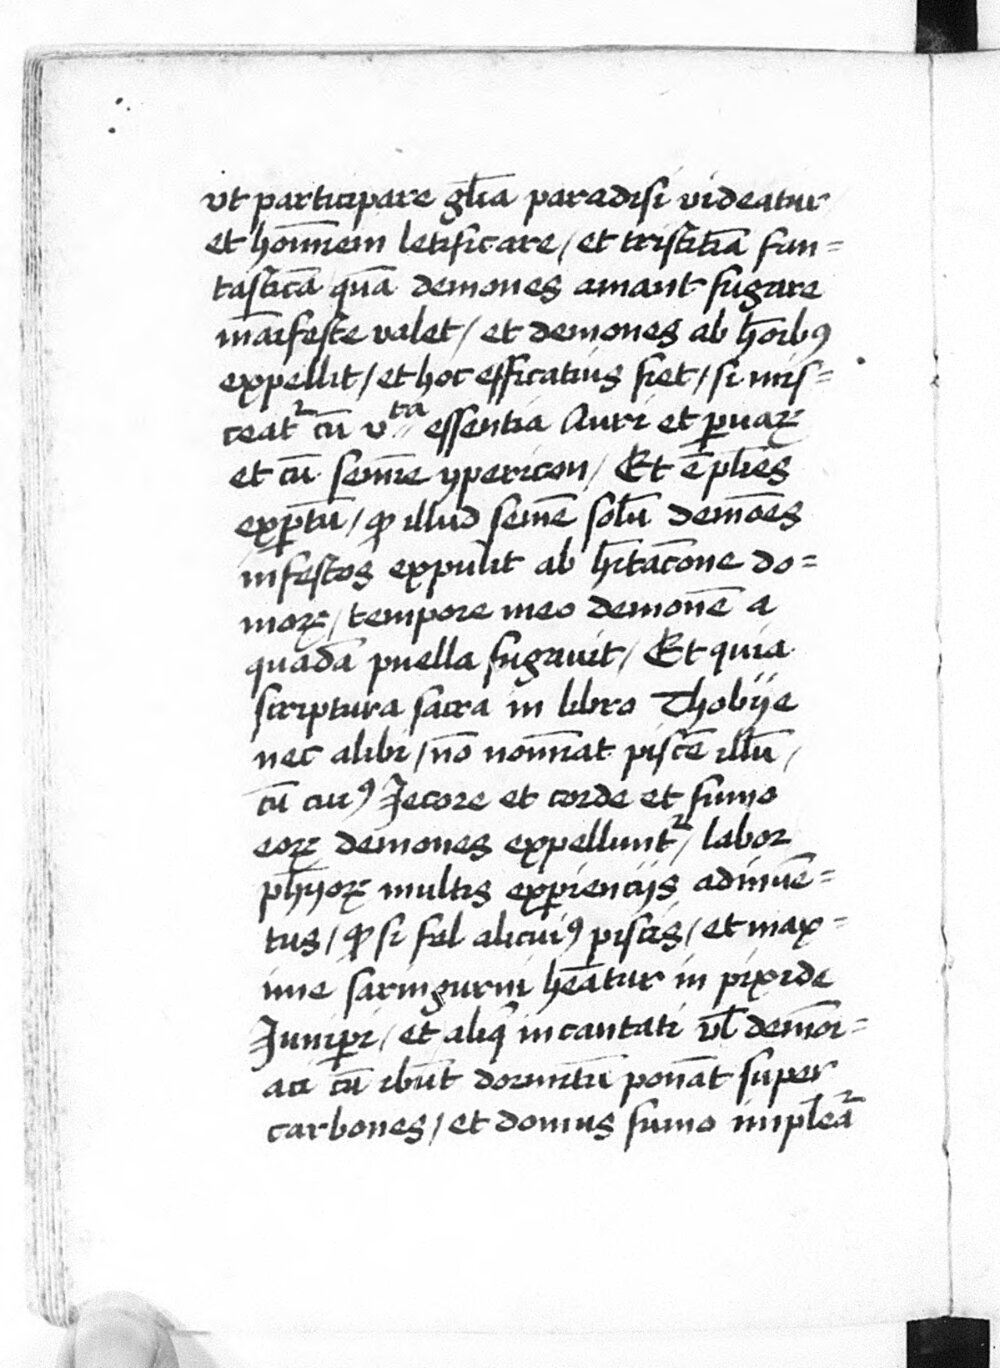 vt participare glīa paradisi videatur
et homīnem letificare / et tristitiā fan=
tasticā quā demones amant fugare
māifeste valet / et demones ab hoībꝰ
expellit / et hoc efficatius fiet / si mis=
ceat᷑ cū vᵗᵃ essentia Auri et ꝑuaꝝ
et cū semīe ypericon / Et ē plīes
exꝑtū / ꝙ illud semē solū demōes
infestos expulit ab hītacōne do=
moꝝ / tempore meo demonē a
quadā puella fugauit / Et quia
scriptura sacra in libro Thobije
nec alibi / nō nomīat piscē illū /
cū cuiꝰ Jecore et corde et fumo
eoꝝ demones expellunt᷑ / labor
phījoꝝ multis exꝑiencijs adinuē=
tus / ꝙ si fel alicuiꝰ piscis / et max=
ime heātur in pixide
Juniꝑi / et aliq̄ incantati vl̄ demōi=
aci cū ibūt dormitū ponāt super
carbones / et domus fumo impleā᷑